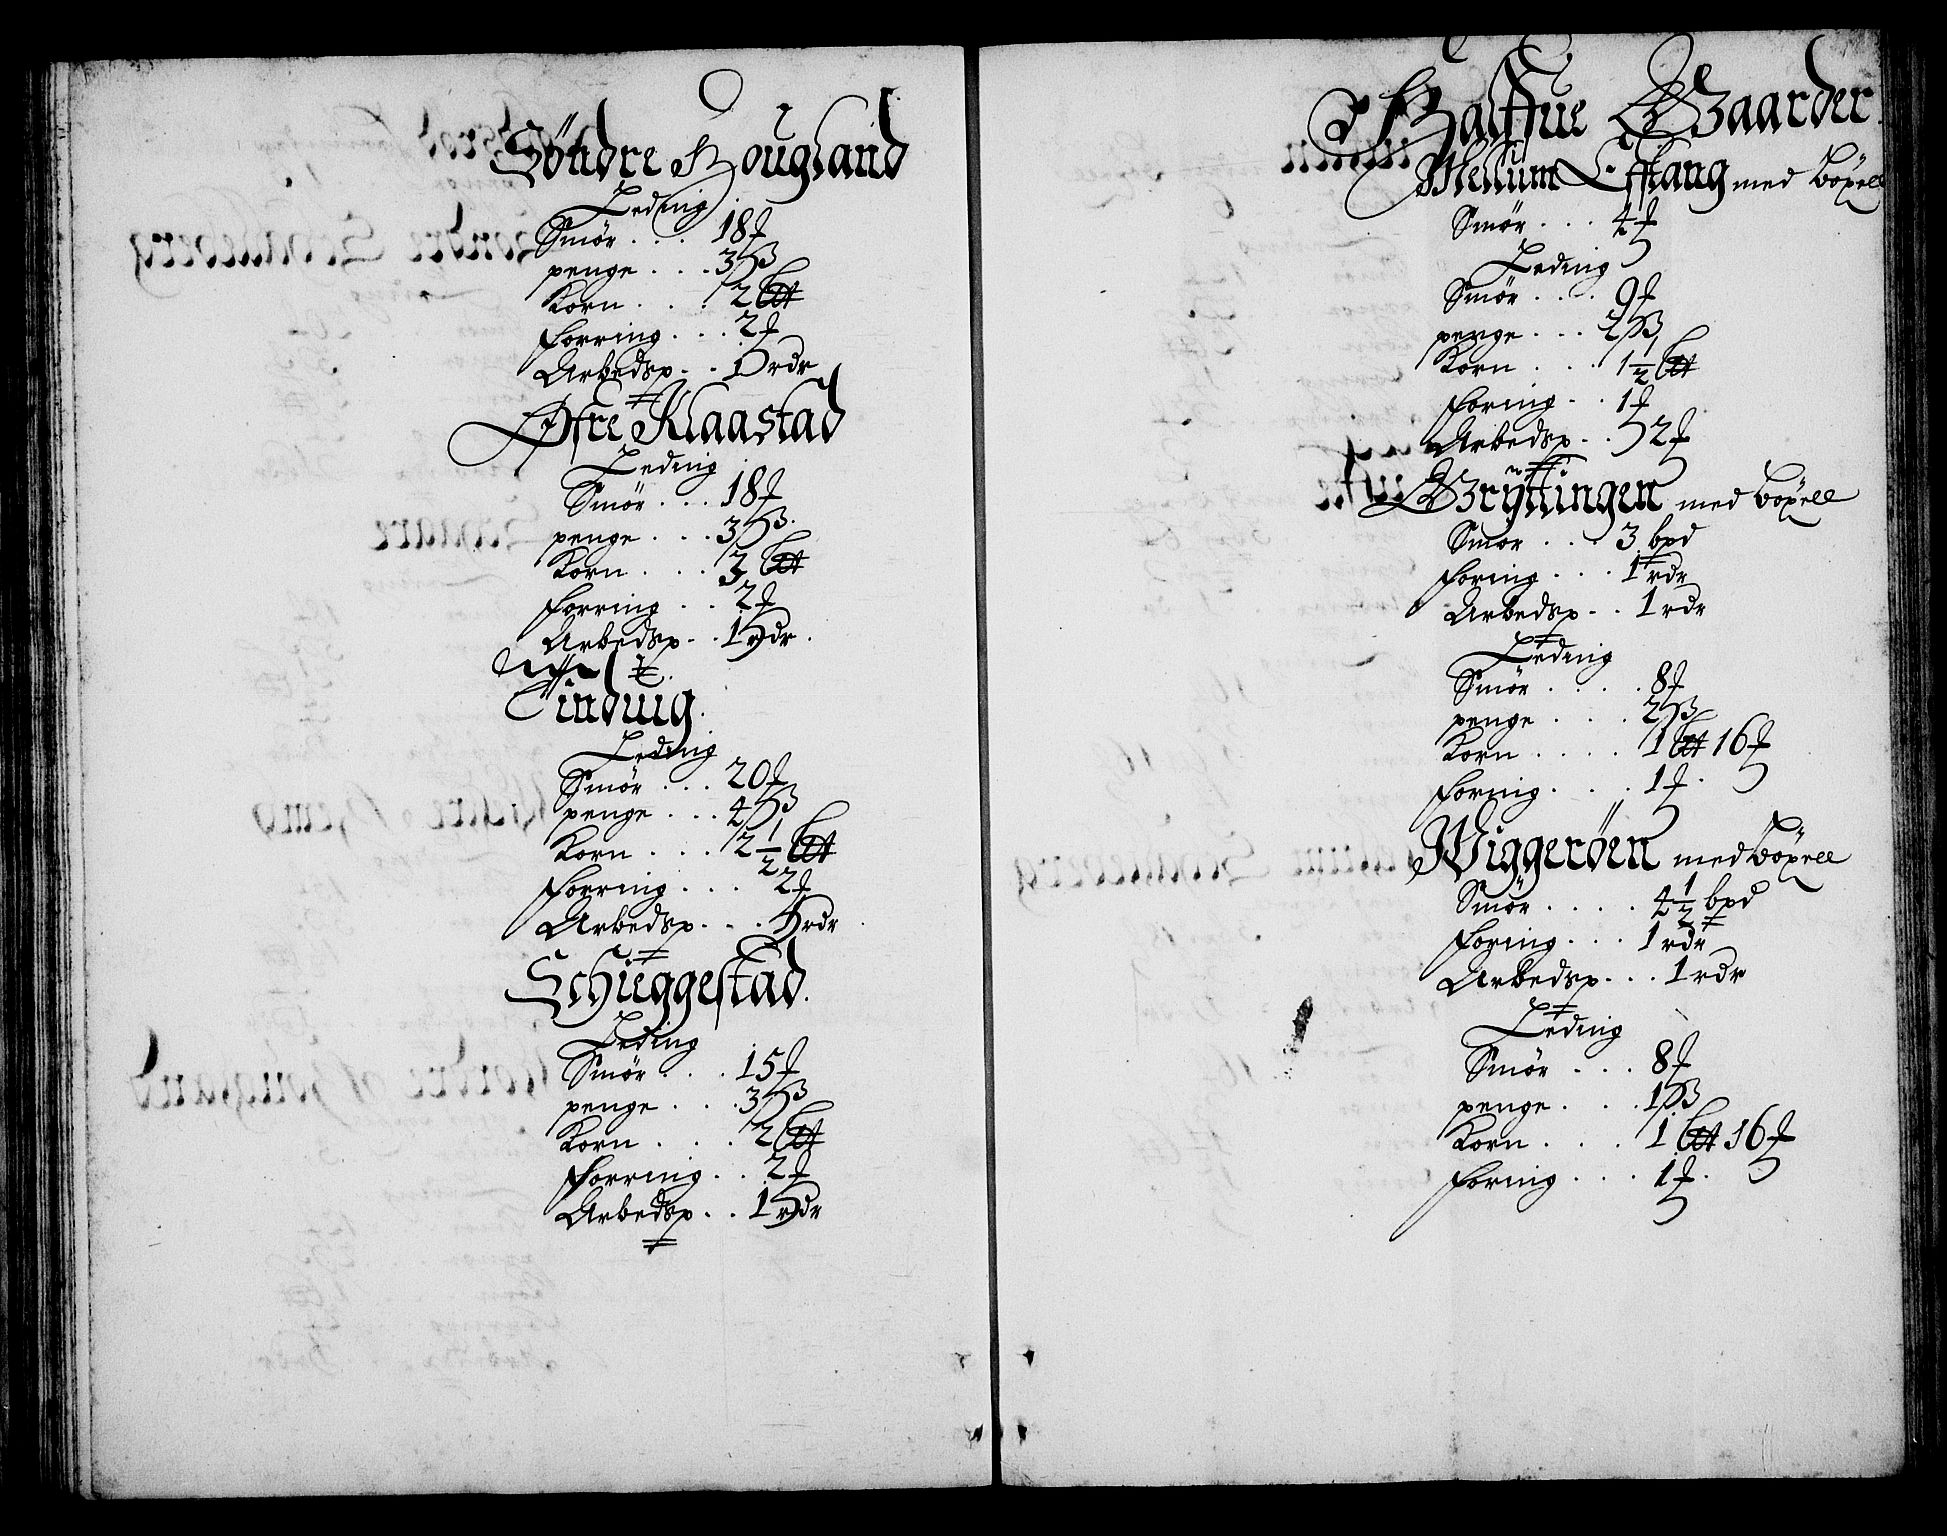 Söndre Hougland
Leding
Smør . . . 18 ℔
penge . . . 3 ß
Korn . . . 2 Ltt
forring . . . 2 ℔
Arbedsp . . 1 rdr
Øfre Klaastad
Leding
Smør . . . 18 ℔
penge . . . 3 ß
Korn . . . Ltt
forring . . 2 ℔
Arbedsp . . 1 rdr
Linduig
Leding
Smør . . . 20 ℔
penge . . . 4 ß
Korn . . . 2 1/2 Ltt
forring . . . 2 ℔
Arbedsp . . . rdr
Schüggestad
Leding
Smør . . . 15 ℔
penge . . . 3 ß
Korn . . . 2 Ltt
forring . . 2 ℔
Arbedsp . . 1 rdr
Halffue Gaarder
Mellum Efftang med böxell
Smør . . . 4 ℔
Leding
Smør . . . 9 ℔
penge . . . 2 ß
Korn . . . 1 1/2 Ltt
foring . . 1 ℔
Arbedsp . . 2 ℔
Grÿttingen med böxell
Smør . . . 3 bpd
foring . . . 1 rdr
Arbedsp . . 1 rdr
Leding
Smør . . . . 8 ℔
penge . . . . 2 ß
Korn . . . . 1 Ltt 16 ℔
foring . . . . 1 ℔
Wiggerøen med böxell
Smør . . . . 4 1/2 bpd
foring . . . 1 rdr
Arbedsp . . . 1 rdr
Leding
Smør . . . 8 ℔
penge . . . . 1 ß
Korn . . . . 1 Ltt 16 ℔
foring . . . . 1 ℔